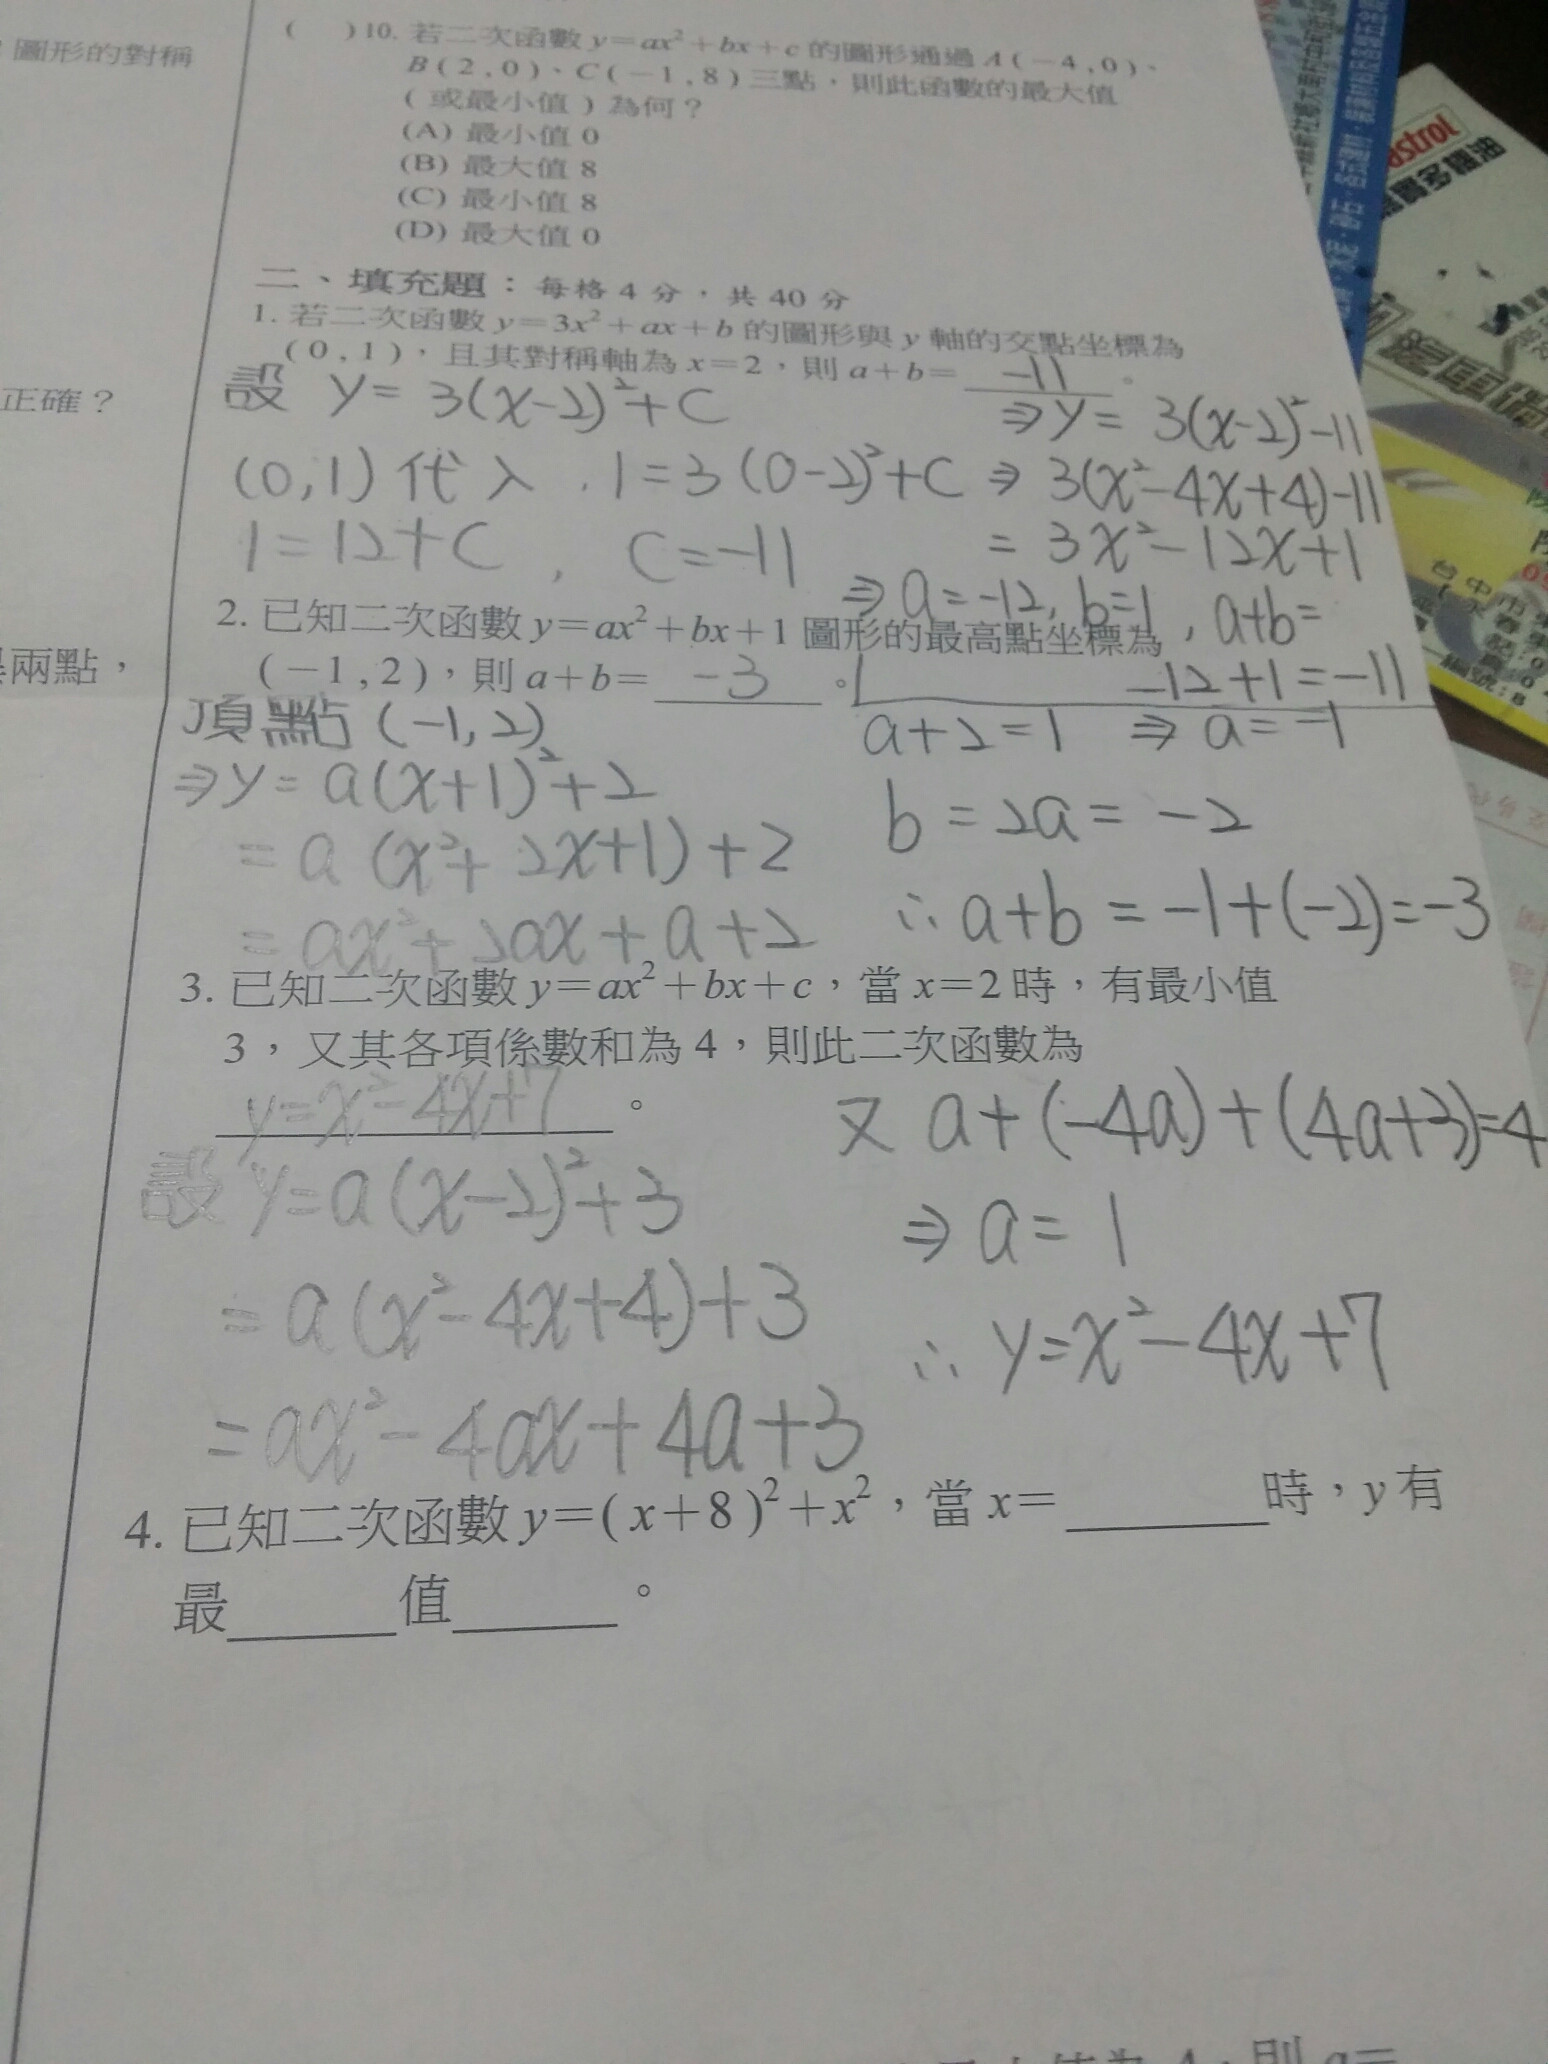 圖形的對稱
正確？
兩點，
( )10. 若二次函數 y=ax²+bx+c 的圖形通過 A(−4,0)、
B(2,0)、C(−1,8)三點，則此函數的最大值
(或最小值)為何？
(A) 最小值 0
(B) 最大值 8
(C) 最小值 8
(D) 最大值 0
二、填充題：每格 4 分，共 40 分
1. 若二次函數 y=3x²+ax+b 的圖形與 y 軸的交點坐標為
(0,1)，且其對稱軸為 x=2，則 a+b= -11 。
設 y= 3(x-2)²+C
⇒y= 3(x-2)²-11
(0,1) 代入 . 1=3(0-2)²+C
⇒ 3(x²-4x+4)-11
1=12+C , C=-11
= 3x²-12x+1
⇒ a=-12, b=1, a+b=
-12+1=-11
2. 已知二次函數 y=ax²+bx+1 圖形的最高點坐標為
(−1,2)，則 a+b= -3 。
頂點 (-1,2)
⇒y= a(x+1)²+2
= a(x²+2x+1)+2
= ax²+2ax+a+2
a+2=1 ⇒ a=-1
b=2a=-2
∴ a+b = -1+(-2)=-3
3. 已知二次函數 y=ax²+bx+c，當 x=2 時，有最小值
3，又其各項係數和為 4，則此二次函數為
y=x²-4x+7 。
設 y=a(x-2)²+3
= a(x²-4x+4)+3
= ax²-4ax+4a+3
又 a+(-4a)+(4a+3)=4
⇒ a=1
∴ y=x²-4x+7
4. 已知二次函數 y=(x+8)²+x²，當 x=______時，y 有
最______值______。
則 a=
astrol
台中市